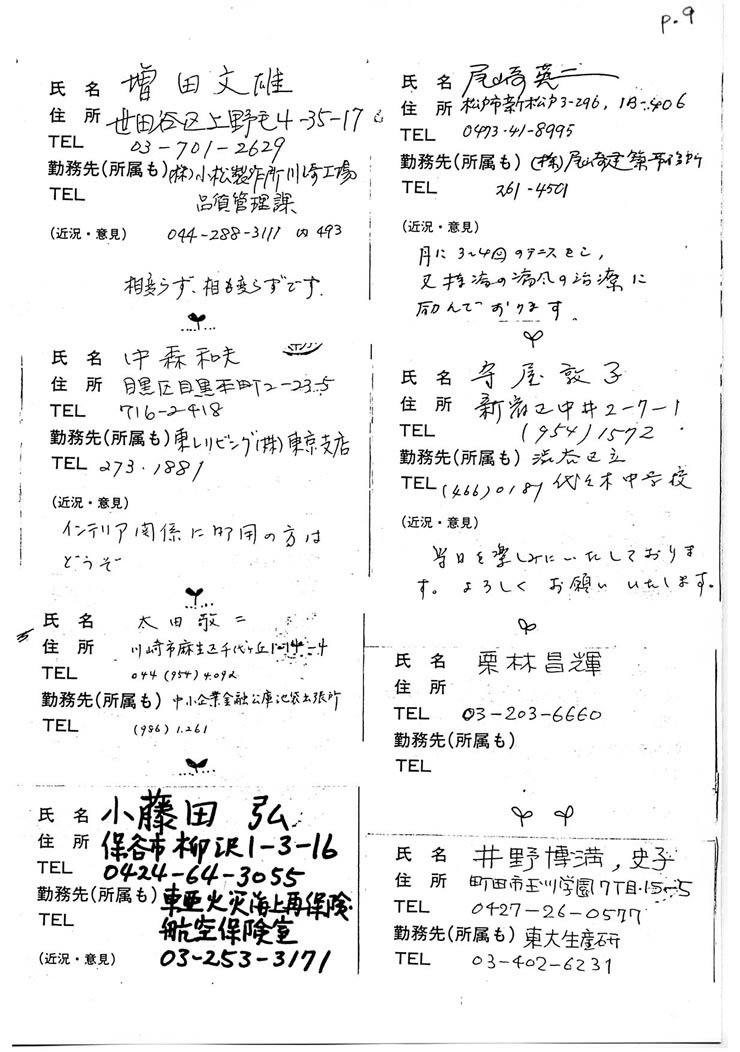 p.9
氏 名 増田文雄
住 所 世田谷区上野毛4-35-17
TEL 03-701-2629
勤務先(所属も) (株)小松製作所川崎工場
TEL 品質管理課
(近況・意見) 044-288-3111 内493
相変らず、相も変らずです.
氏 名 中森和夫
住 所 目黒区目黒本町2-23-5
TEL 716-2418
勤務先(所属も) 東レリビング(株)東京支店
TEL 273.1881
(近況・意見)
インテリア関係に御用の方は
どうぞ
氏 名 太田敬二
住 所 川崎市麻生区千代ヶ丘1-14-4
TEL 044 (954) 4092
勤務先(所属も) 中小企業金融公庫池袋出張所
TEL (986) 1.261
氏 名 小藤田 弘
住 所 保谷市柳沢1-3-16
TEL 0424-64-3055
勤務先(所属も) 東亜火災海上再保険
TEL 航空保険室
(近況・意見) 03-253-3171
氏 名 尾崎英二
住 所 松戸市新松戸3-296, 1B-406
TEL 0473-41-8995
勤務先(所属も) (株)尾崎建築事務所
TEL 261-4501
(近況・意見)
月に3~4回のテニスをし,
又持病の痛風の治療に
励んでおります.
氏 名 寺尾敦子
住 所 新宿区中井2-7-1
TEL (954) 1572
勤務先(所属も) 渋谷区立
TEL (466) 0187 代々木中学校
(近況・意見)
当日を楽しみにいたしておりま
す。よろしくお願いいたします。
氏 名 栗林昌輝
住 所
TEL 03-203-6660
勤務先(所属も)
TEL
氏 名 井野博満, 史子
住 所 町田市玉川学園7丁目-15-5
TEL 0427-26-0577
勤務先(所属も) 東大生産研
TEL 03-402-6231